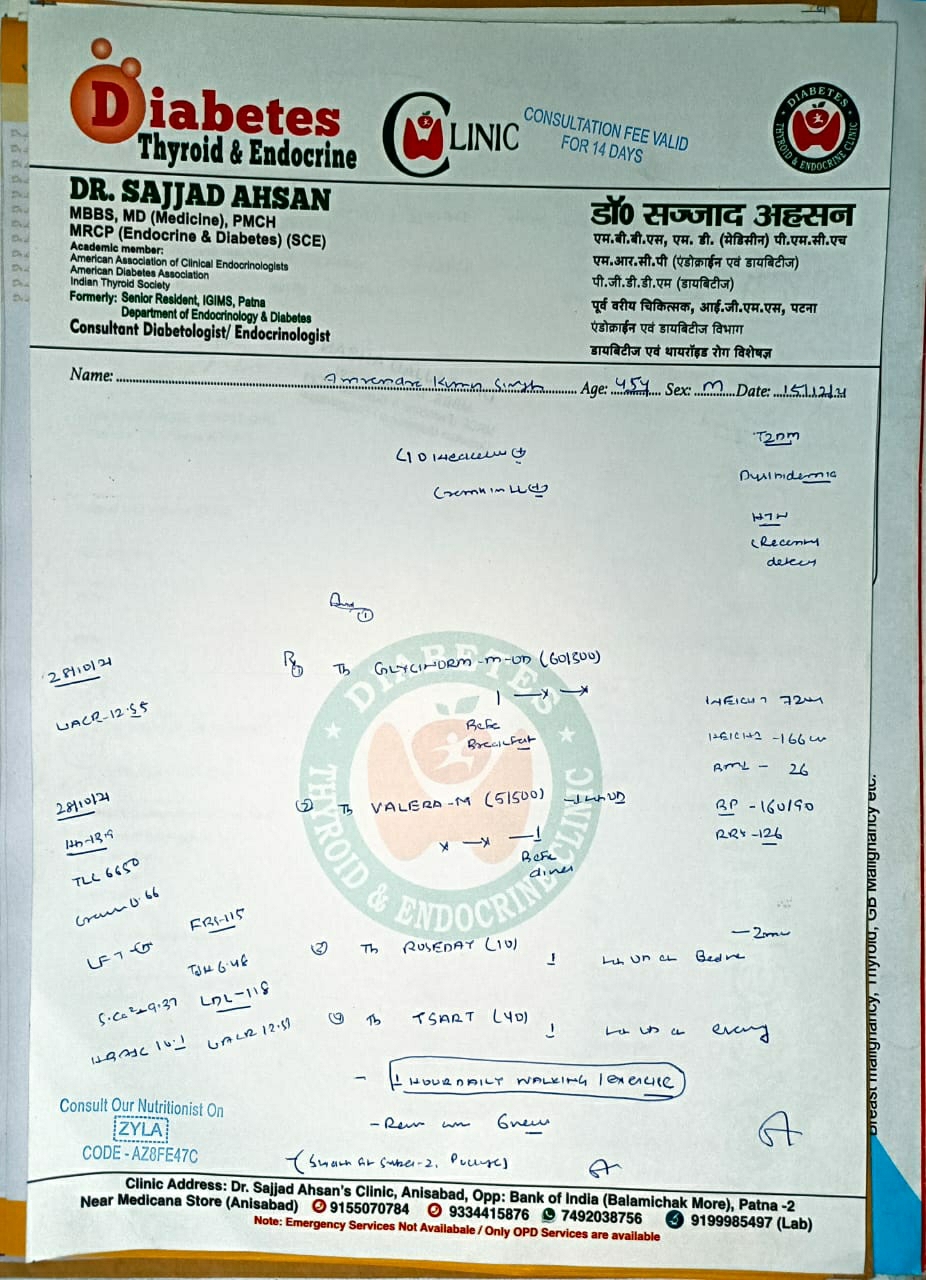 Diabetes
Thyroid & Endocrine
CLINIC
CONSULTATION FEE VALID
FOR 14 DAYS
DIABETES
THYROID & ENDOCRINE CLINIC
DR. SAJJAD AHSAN
MBBS, MD (Medicine), PMCH
MRCP (Endocrine & Diabetes) (SCE)
Academic member:
American Association of Clinical Endocrinologists
American Diabetes Association
Indian Thyroid Society
Formerly: Senior Resident, IGIMS, Patna
Department of Endocrinology & Diabetes
Consultant Diabetologist/ Endocrinologist
डॉ0 सज्जाद अहसन
एम.बी.बी.एस, एम. डी. (मेडिसीन) पी.एम.सी.एच
एम.आर.सी.पी (एंडोक्राईन एवं डायबिटीज)
पी.जी.डी.डी.एम (डायबिटीज)
पूर्व वरीय चिकित्सक, आई.जी.एम.एस, पटना
एंडोक्राईन एवं डायबिटीज विभाग
डायबिटीज एवं थायरॉइड रोग विशेषज्ञ
Name: Amrendra Kumar Singh Age: 45y Sex: M Date: 15/12/21
T2DM
HTN
28/10/21
UACR-12.55
Rx
① Tb GLYCINORM-M-OD (60/500)
1 —x —x
Before
Breakfast
WEIGHT 72
HEIGHT -166 cm
BMI - 26
BP -160/90
RBS-126
② Tb VALERA-M (5/500)
x —x —1
Before
dinner
28/10/21
Hb-13.9
TLC 6650
0.66
FBS-115
TSH 6.48
S.Ca²⁺ 9.37
LDL-118
HBA1C 10.1
UACR 12.51
③ Tb ROSEDAY (10)
④ Tb TSART (40)
- 1 HOUR DAILY WALKING / EXERCISE
Consult Our Nutritionist On
ZYLA
CODE - AZ8FE47C
DIABETES
THYROID & ENDOCRINE CLINIC
Breast malignancy, Thyroid, GB Malignancy etc.
Clinic Address: Dr. Sajjad Ahsan's Clinic, Anisabad, Opp: Bank of India (Balamichak More), Patna -2
Near Medicana Store (Anisabad) 9155070784 9334415876 7492038756 9199985497 (Lab)
Note: Emergency Services Not Availabale / Only OPD Services are available